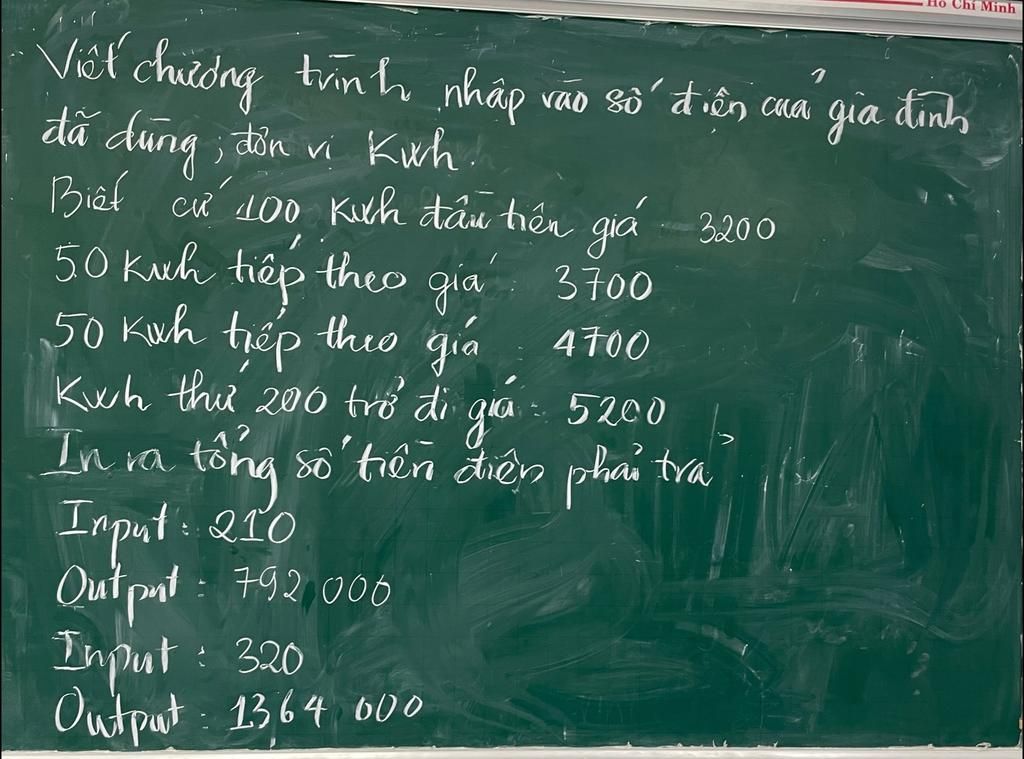 Hồ Chí Minh
Viết chương trình nhập vào số điện của gia đình
đã dùng, đơn vị Kwh.
Biết cứ 100 Kwh đầu tiên giá 3200
50 Kwh tiếp theo giá : 3700
50 Kwh tiếp theo giá : 4700
Kwh thứ 200 trở đi giá : 5200
In ra tổng số tiền điện phải trả
Input : 210
Output : 792.000
Input : 320
Output : 1364 000